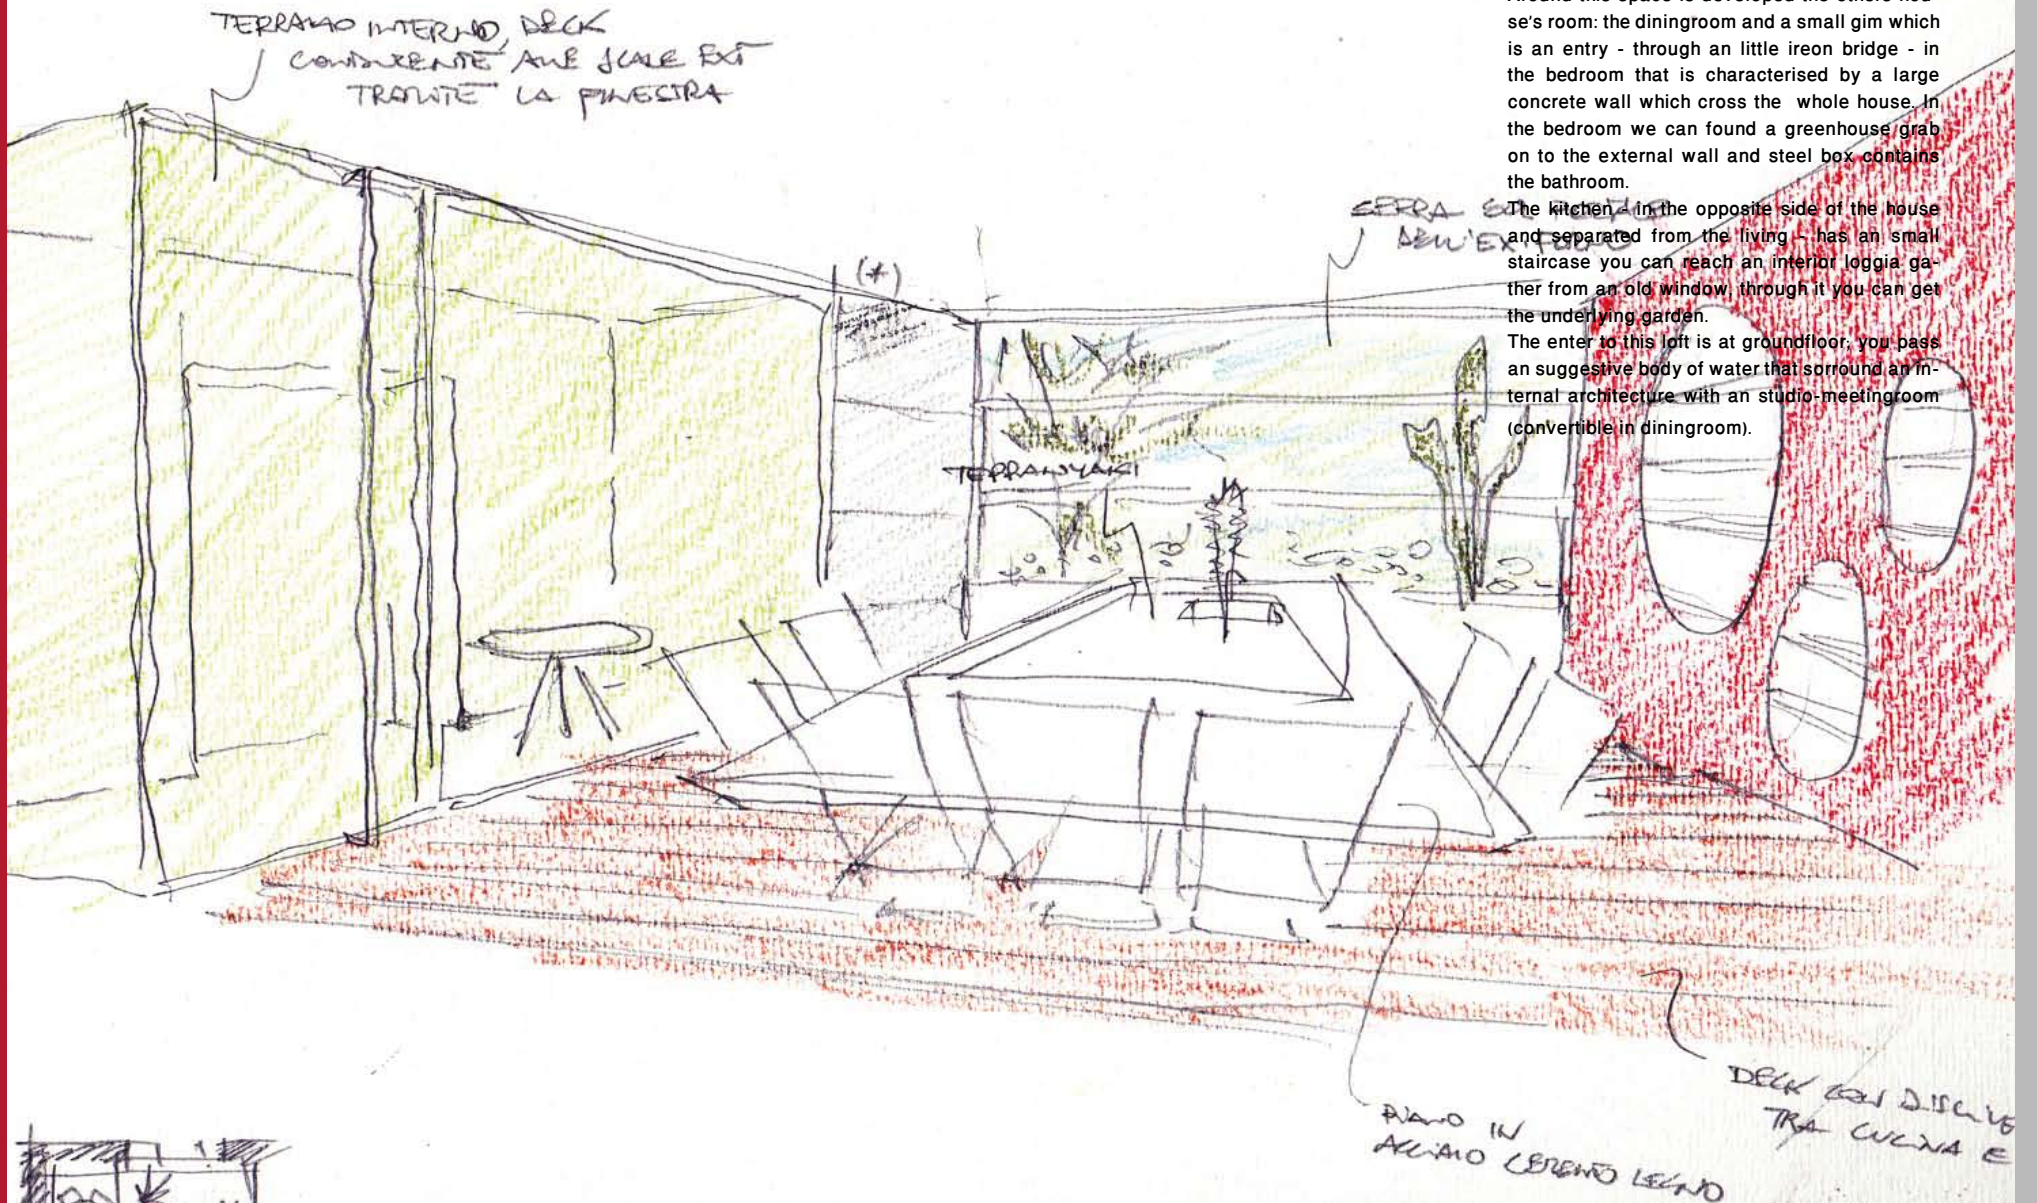 TERRAZZO INTERNO, DECK
CONDUCENTE ALLE SCALE EXT
TRAMITE LA FINESTRA
Around this space is developed the others hou-
se's room: the diningroom and a small gim which
is an entry - through an little ireon bridge - in
the bedroom that is characterised by a large
concrete wall which cross the whole house. In
the bedroom we can found a greenhouse grab
on to the external wall and steel box contains
the bathroom.
The kitchen - in the opposite side of the house
and separated from the living - has an small
staircase you can reach an interior loggia ga-
ther from an old window, through it you can get
the underlying garden.
The enter to this loft is at groundfloor; you pass
an suggestive body of water that sorround an in-
ternal architecture with an studio-meetingroom
(convertible in diningroom).
SERRA
DELL'EX
(*)
TEPPANYAKI
PIANO IN
ACCIAIO LEGNO
DECK CON
TRA CUCINA E